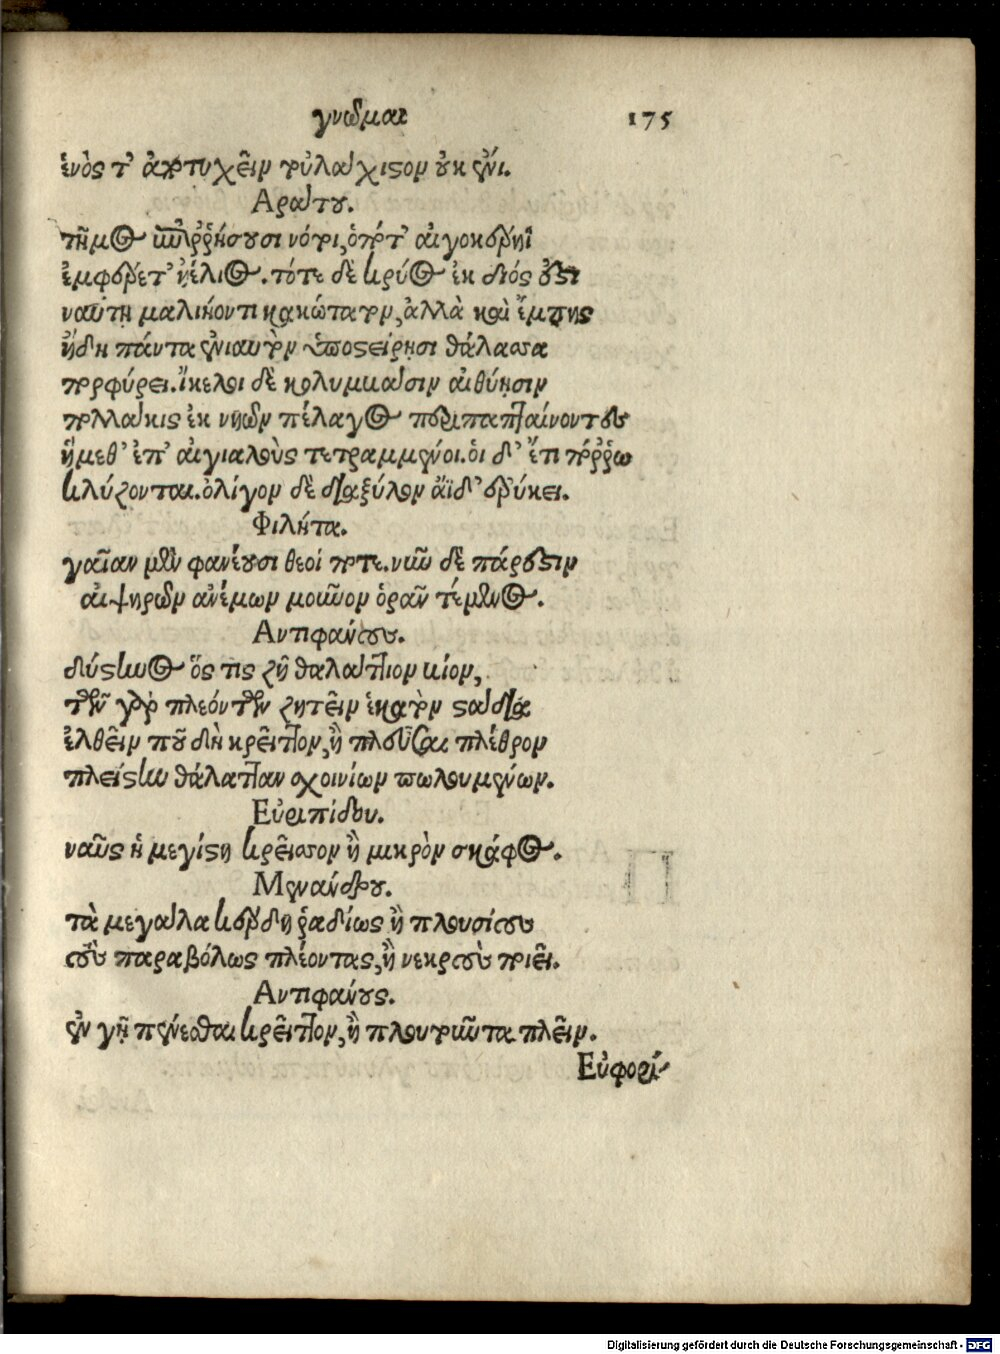 γνῶμαι 175
ἑνὸς τ' ἀποτυχεῖν τοὐλάχιστον οὐκ ἔνι.
Αράτου.
τῆμος ἐπιῤῥήσουσι νότοι, ὁπότ' αἰγοκερῆϊ
ἐμφέρετ' ἠέλιος. τότε δὲ κρύος ἐκ διός ἐστι
ναύτῃ μαλκιόοντι κακώτατον, ἀλλὰ καὶ ἔμπης
ἤδη πάντα ἐνιαυτὸν ὑπὸ στείρῃσι θάλασσα
πορφύρει. ἴκελοι δὲ κολυμβάσιν αἰθύῃσιν
πολλάκις ἐκ νηῶν πέλαγος περιπαπταίνοντες
ἥμεθ' ἐπ' αἰγιαλοὺς τετραμμένοι. οἱ δ' ἔτι πόῤῥω
κλύζονται. ὀλίγον δὲ διὰ ξύλον ἄϊδ' ἐρύκει.
Φιλήτα.
γαῖαν μὲν φανέουσι θεοί ποτε. νῦν δὲ πάρεστιν
αἰψηρῶν ἀνέμων μοῦνον ὁρᾶν τέμενος.
Αντιφάνους.
δύστηνος ὅς τις ζῇ θαλάττιον βίον,
τῶν γὰρ πλεόντων ζητεῖν ἑκατὸν στάδια
ἐλθεῖν που δὴ κρεῖττον, ἢ πλεῦσαι πλέθρον
πλεῖς τὴν θάλατταν σχοινίων πωλουμένων.
Εὐριπίδου.
ναῦς ἡ μεγίστη κρεῖσσον ἢ μικρὸν σκάφος.
Μενάνδρου.
τὰ μεγάλα κέρδη ῥαδίως ἢ πλουσίους
τοὺς παραβόλως πλέοντας, ἢ νεκροὺς ποιεῖ.
Αντιφάνους.
ἐν γῇ πένεσθαι κρεῖττον, ἢ πλουτοῦντα πλεῖν.
Εὐφορί-
Digitalisierung gefördert durch die Deutsche Forschungsgemeinschaft - DFG